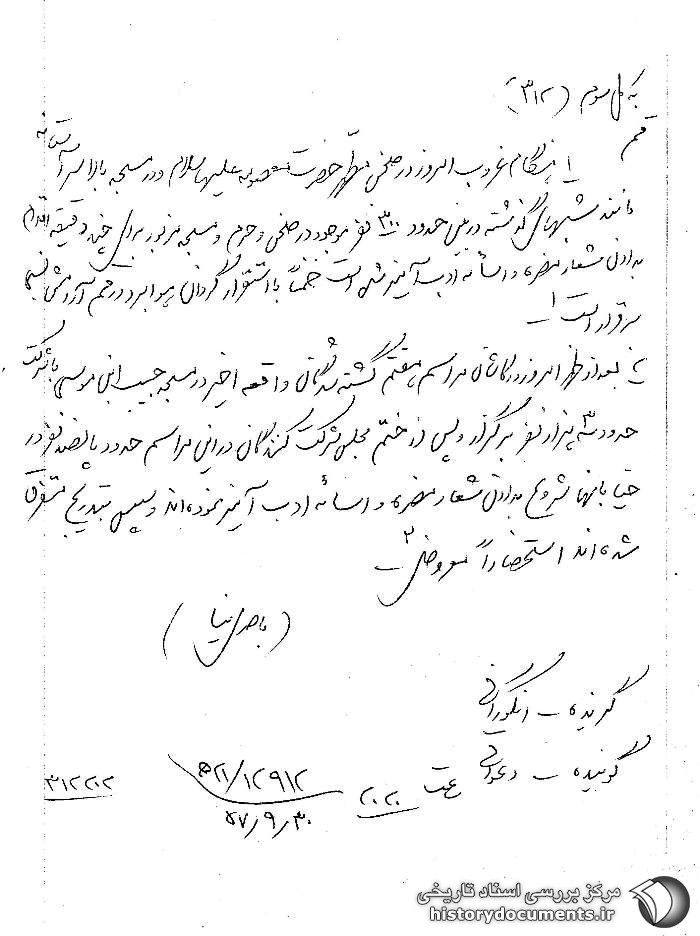 به کل سوم (۳۱۲)
قم
۱ هنگام غروب امروز در صحن مطهر حضرت معصومه علیهاسلام و در مسجد بالاسر آستانه
مانند شبهای گذشته در بین حدود ۳۰۰ نفر موجود در صحن و حرم و مسجد مزبور برای چند دقیقه اقدام
بدادن شعار مضره و اسائه ادب آمیز شده است ضمناً با استقرار گردان هوابرد در قم آرامش نسبی
برقرار است ۱ـ
۲ بعد از ظهر امروز در کاشان مراسم هفتم کشته شدگان واقعه اخیر در مسجد حبیب ابن موسی با شرکت
حدود ۳ هزار نفر برگزار و پس از ختم مجلس شرکت کنندگان در این مراسم حدود پانصد نفر در
خیابانها شروع بدادن شعار مضره و اسائه ادب آمیز نموده‌اند و سپس بتدریج متفرق
شده‌اند استحضاراً معروض ۲ـ
( نیا )
گیرنده ـ انگورانی
گوینده ـ ساعت ۲۰۲۰
۵۲۱/۱۲۹۱۲
۳۱۲۲۰۲
۵۷٫۹٫۳۰
مرکز بررسی اسناد تاریخی
historydocuments.ir